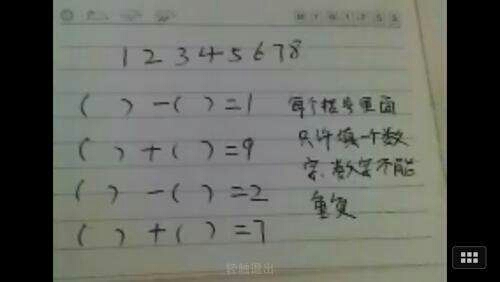 1 2 3 4 5 6 7 8
( ) - ( ) = 1
( ) + ( ) = 9
( ) - ( ) = 2
( ) + ( ) = 7
每个括号里面
只许填一个数
字.数字不能
重复
轻触退出